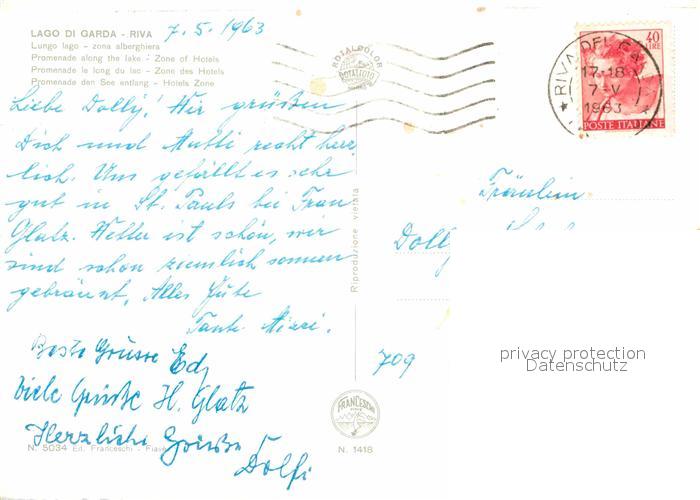 LAGO DI GARDA - RIVA
Lungo lago - zona alberghiera
Promenade along the lake - Zone of Hotels
Promenade le long du lac - Zone des Hotels
Promenade den See entlang - Hotels Zone
7.5.1963
ROTALCOLOR
ROTALFOTO
40
LIRE
RIVA DEL GA
17-18
7-V
1963
POSTE ITALIANE
Liebe Dolly! Wir grüßen
Dich und Mutti recht herz
lich. Uns gefällt es sehr
gut in St. Pauls bei Frau
Glatz. Wetter ist schön, wir
sind schon ziemlich sonnen
gebräunt. Alles Gute
Tante Mizzi.
Beste Grüsse Edj
Viele Grüße H. Glatz
Herzliche Grüße
Dolfi
Riproduzione vietata
Fräulein
Dolly
709
privacy protection
Datenschutz
FRANCESCHI
N. 5034 Ed. Franceschi - Fiave
N. 1418